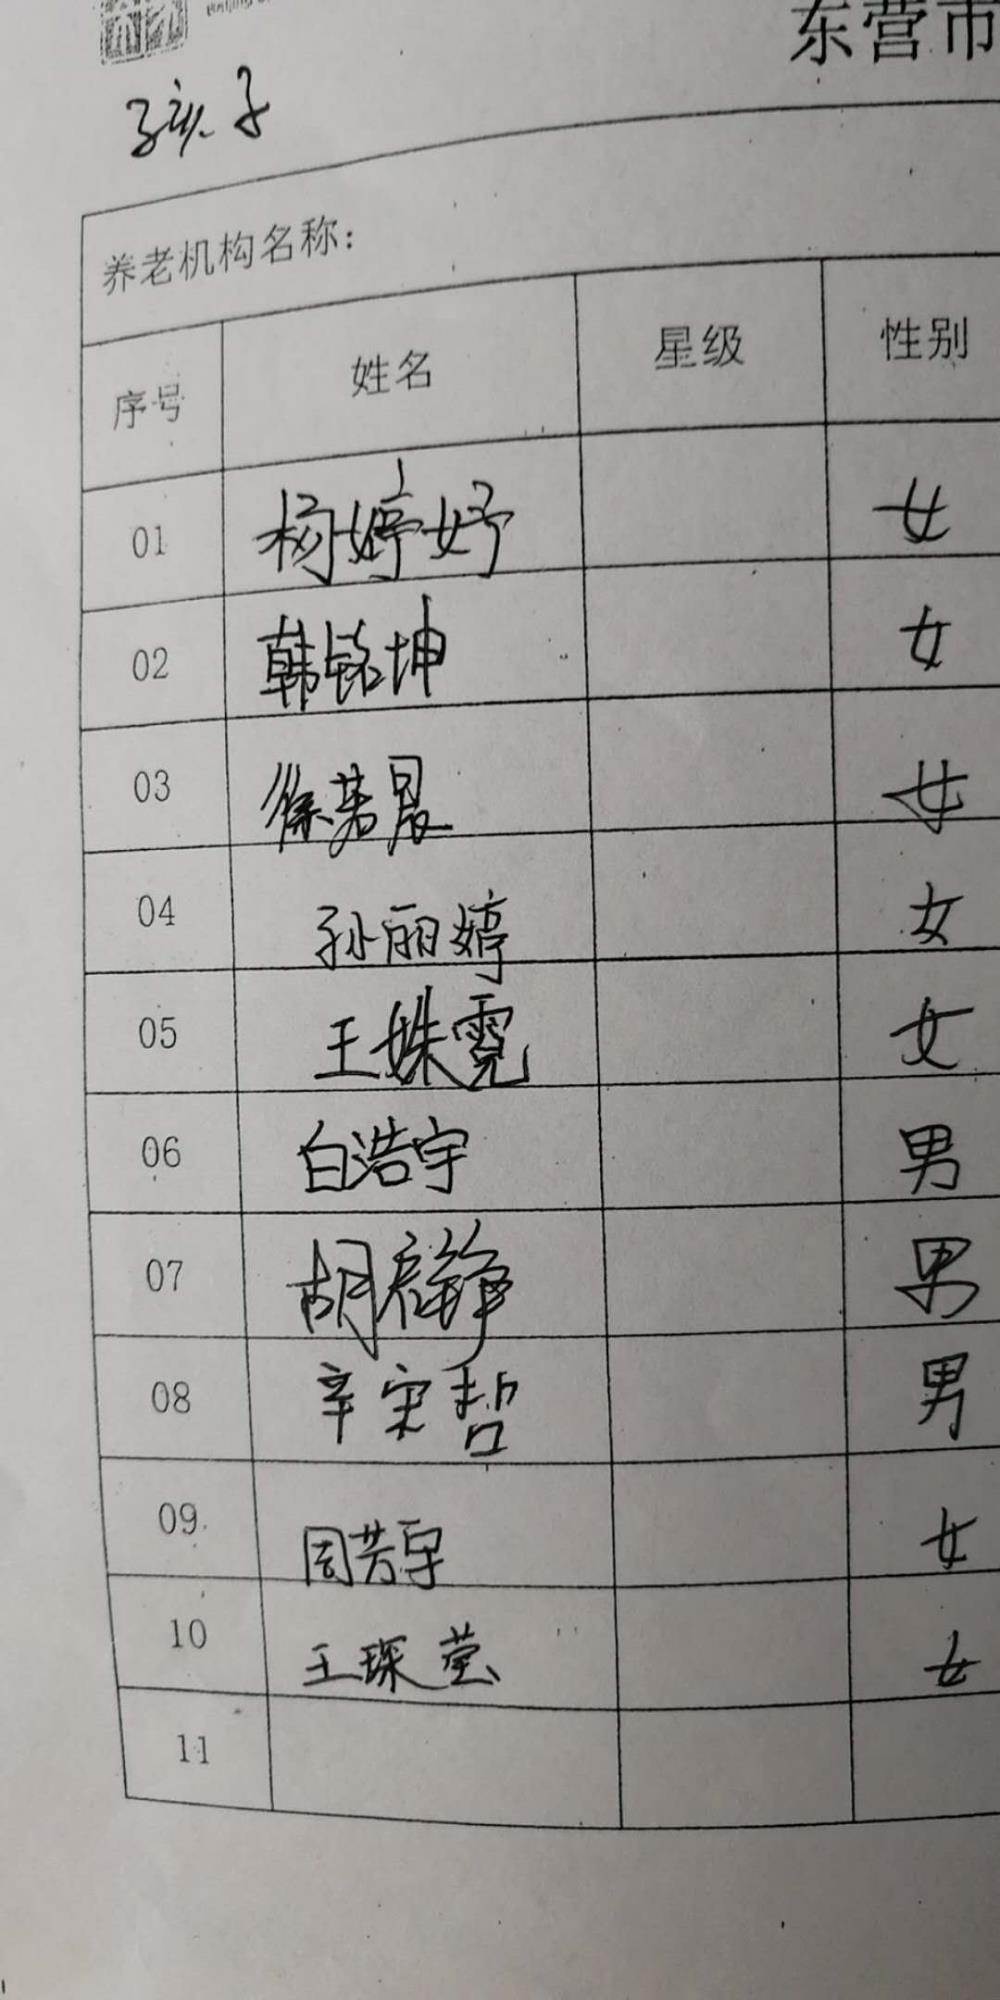 东营市
孩子
养老机构名称：
序号 姓名 星级 性别
01 杨婷妤 女
02 韩铭坤 女
03 徐若晨 女
04 孙丽婷 女
05 王姝霓 女
06 白浩宇 男
07 胡启铮 男
08 辛宗哲 男
09 周芳宇 女
10 王琛莹 女
11